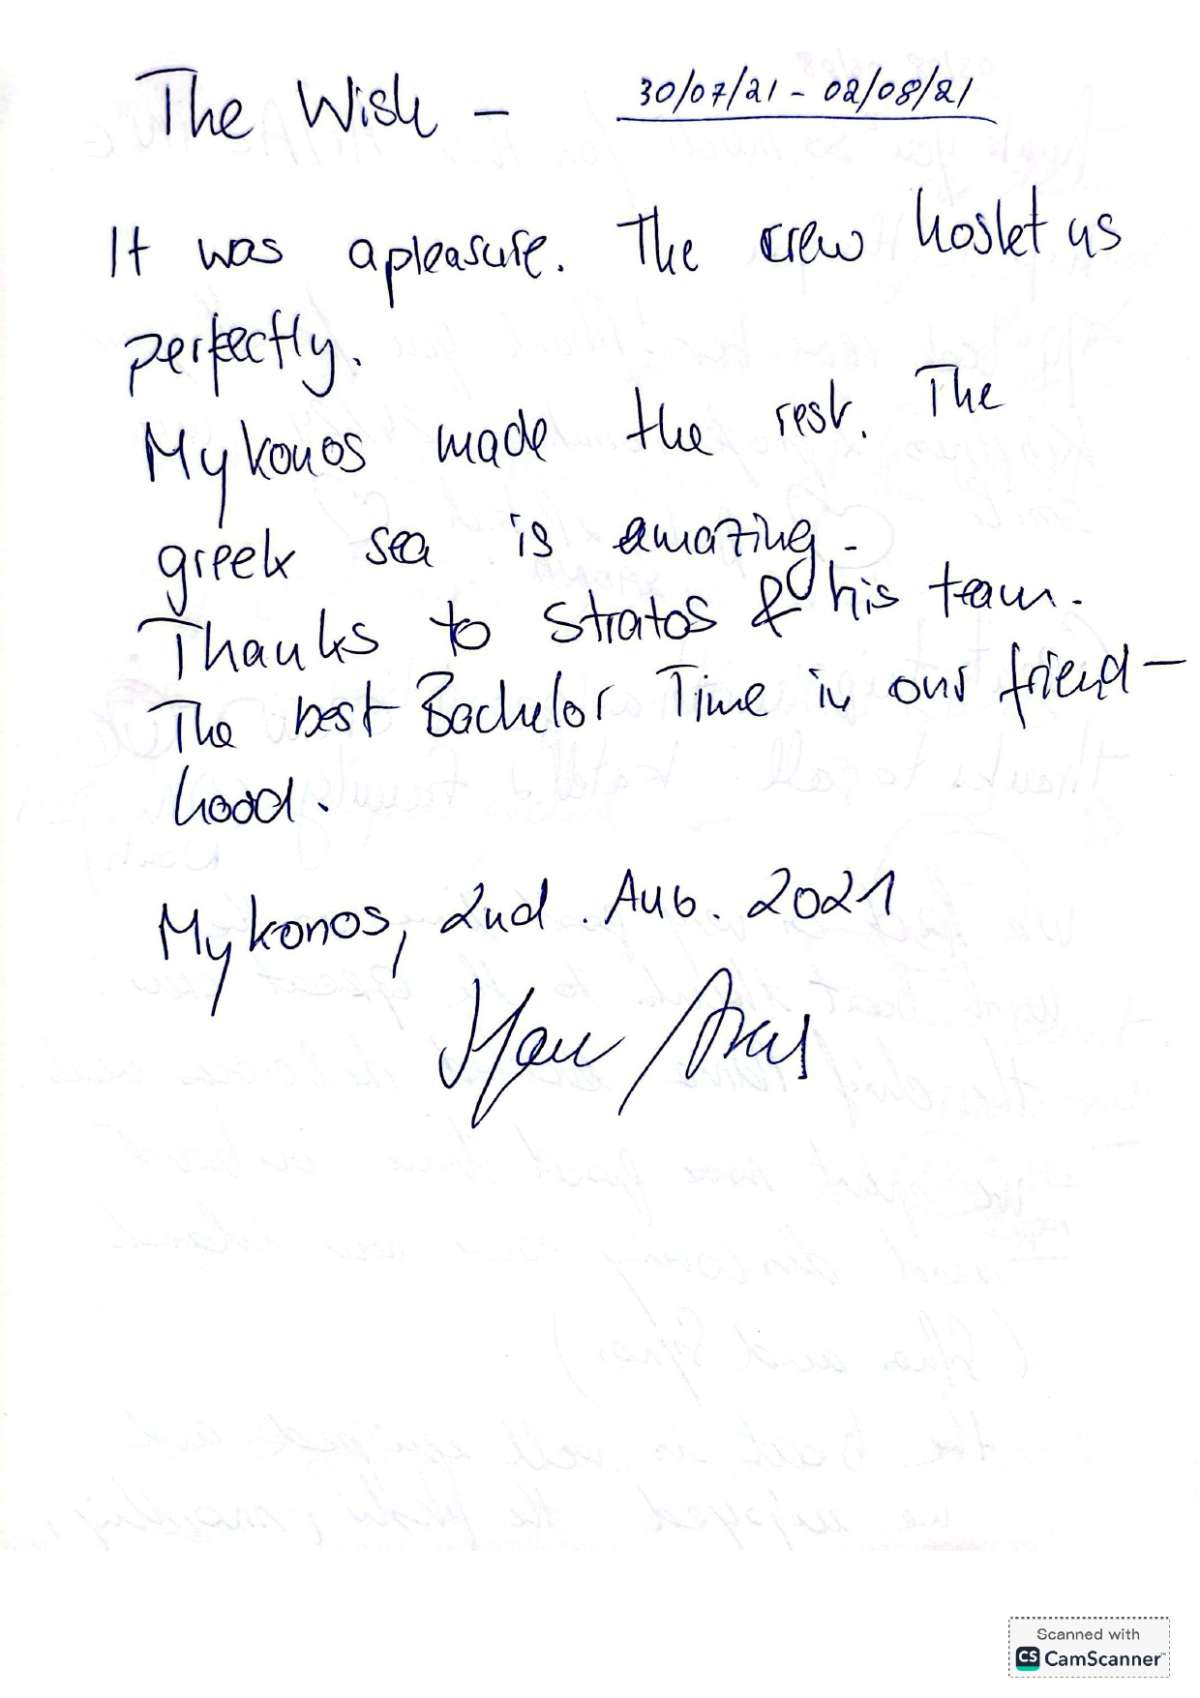 The Wish - 30/07/21 - 02/08/21
It was a pleasure. The crew hostet us
perfectly.
Mykonos made the rest. The
greek sea is amazing.
Thanks to Stratos & his team.
The best Bachelor Time in our friend-
hood.
Mykonos, 2nd. Aug. 2021
Scanned with
CS CamScanner